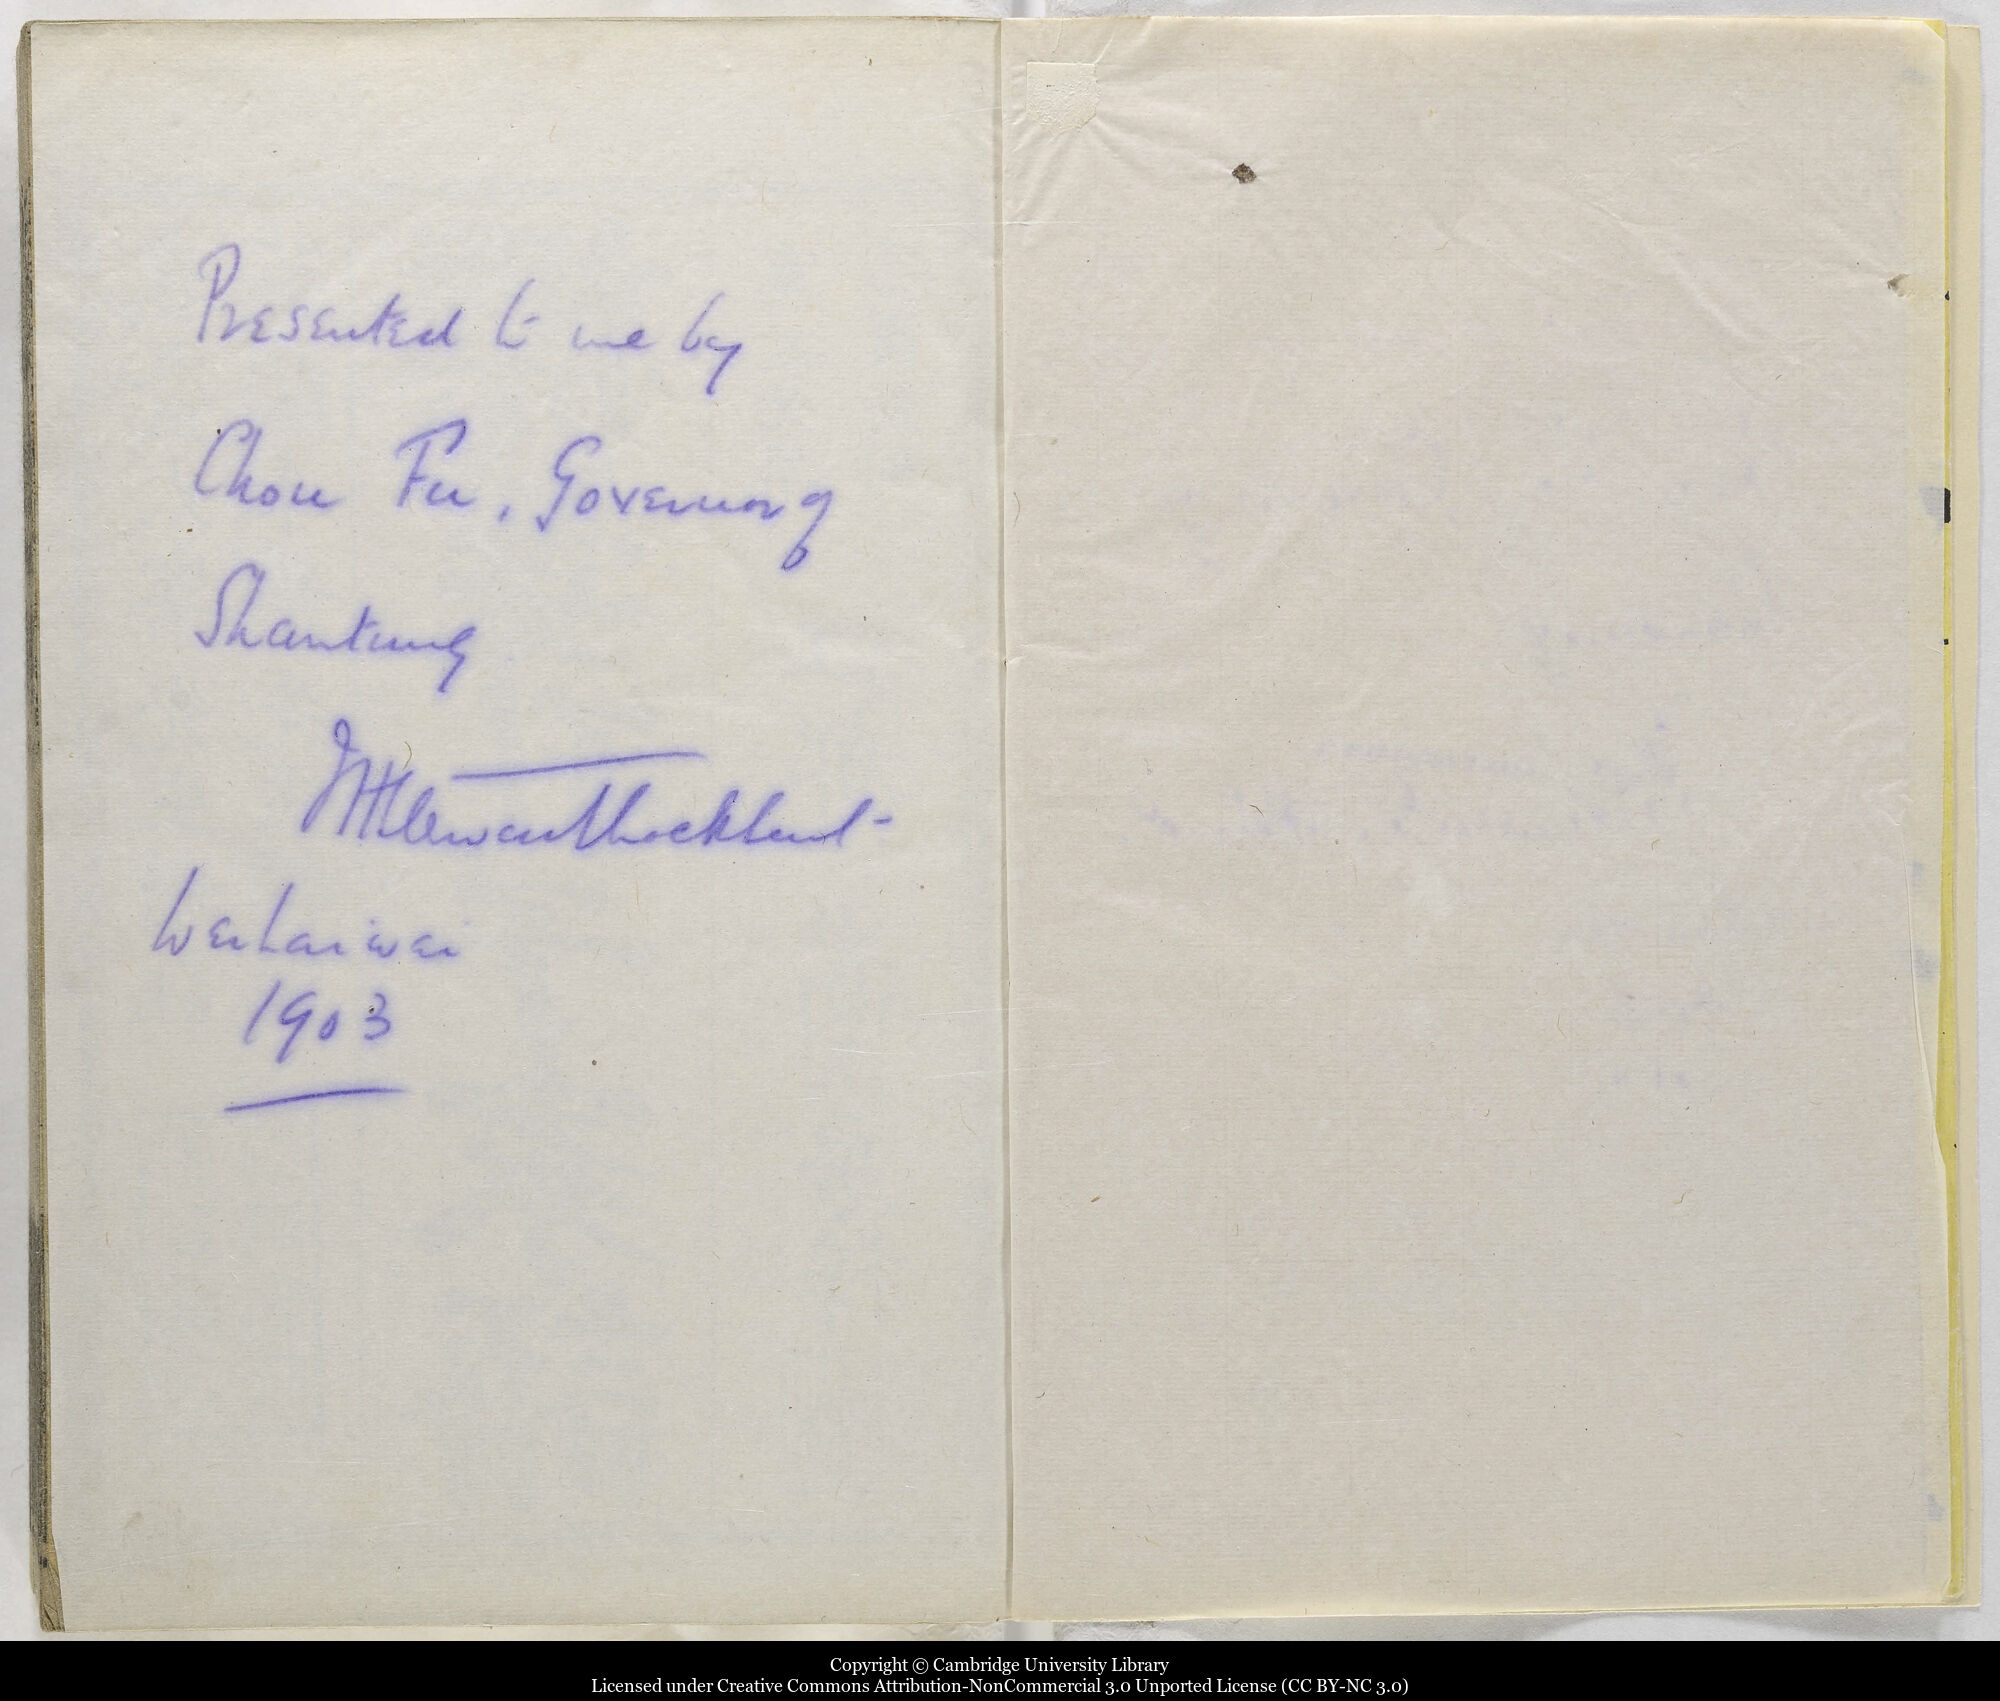 Presented to me by
Chou Fu, Governor of
Shantung
JHStewart Lockhart
Weihaiwei
1903
Copyright © Cambridge University Library
Licensed under Creative Commons Attribution-NonCommercial 3.0 Unported License (CC BY-NC 3.0)